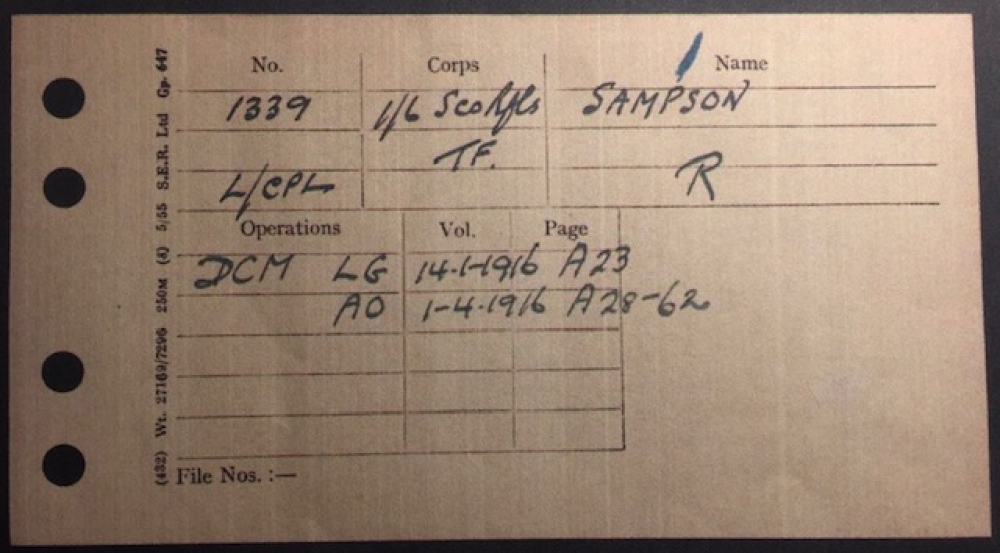 (432) Wt. 27169/7296 250M (4) 5/55 S.E.R. Ltd Gp. 647
No. Corps Name
1339 1/6 Sco Rfls SAMPSON
TF. R
L/CPL
Operations Vol. Page
DCM LG 14-1-1916 A23
AO 1-4-1916 A28-62
File Nos. :—